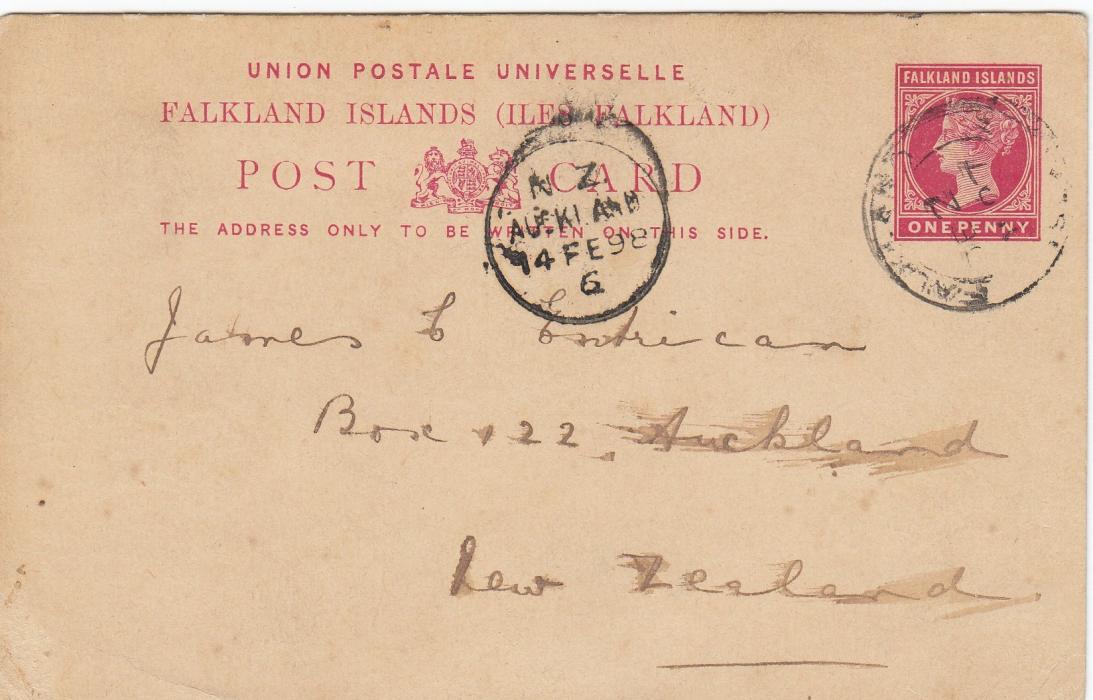 UNION POSTALE UNIVERSELLE
FALKLAND ISLANDS (ILES FALKLAND)
POST CARD
THE ADDRESS ONLY TO BE WRITTEN ON THIS SIDE.
FALKLAND ISLANDS
ONE PENNY
N Z
AUCKLAND
14 FE 98
6
James Entrican
Box 22 Auckland
New Zealand